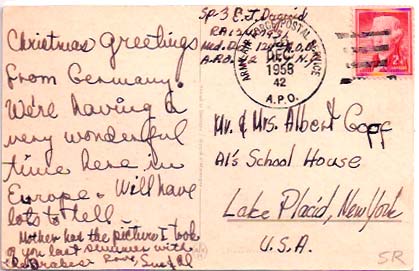 Christmas Greetings
from Germany.
We're having a
very wonderful
time here in
Europe. Will have
lots to tell.
Mother had the picture I took
of you last summer with
Love,
Sp-3 E.J.
Med. Det.
A.P.O.
ARMY-AIR FORCE POSTAL SERVICE
DEC
1958
42
A.P.O.
2¢
Mr. & Mrs. Albert Goff
Al's School House
Lake Placid, New York
U.S.A.
SR